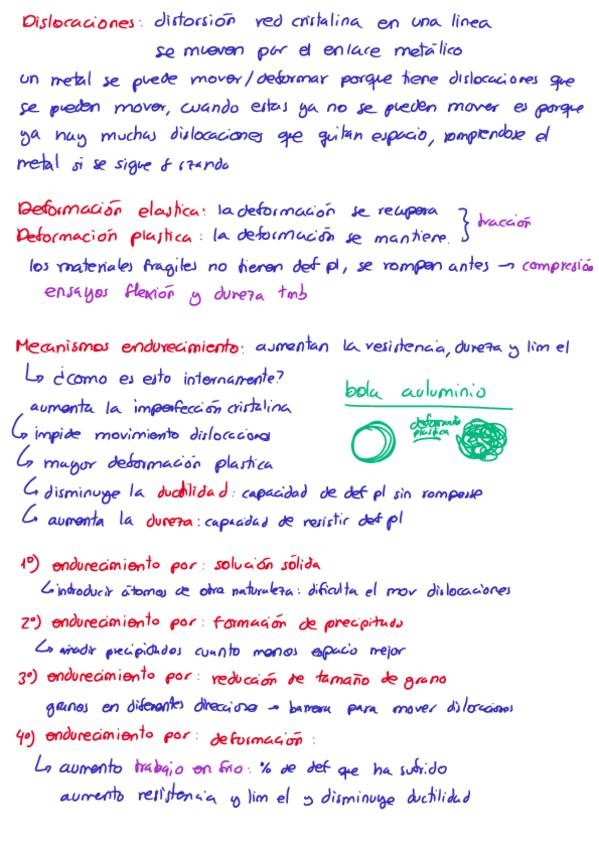 Dislocaciones: distorsión red cristalina en una linea
se mueven por el enlace metálico
un metal se puede mover/deformar porque tiene dislocaciones que
se pueden mover, cuando estas ya no se pueden mover es porque
ya hay muchas dislocaciones que quitan espacio, rompiendose el
metal si se sigue
Deformación elastica: la deformación se recupera
Deformacion plastica: la deformación se mantiene. } tracción
los materiales fragiles no tienen def pl, se rompen antes → compresión
ensayos flexión y dureza tmb
Mecanismos endurecimiento: aumentan la resistencia, dureza y lim el
↳ ¿como es esto internamente?
bola auluminio
aumenta la imperfección cristalina
deformada plastica
↳ impide movimiento dislocaciones
↳ mayor deformación plastica
↳ disminuye la ductilidad: capacidad de def pl sin romperse
↳ aumenta la dureza: capacidad de resistir def pl
1º) endurecimiento por: solución sólida
↳ introducir átomos de otra naturaleza: dificulta el mov dislocaciones
2º) endurecimiento por: formación de precipitado
↳ añadir precipitados cuanto menos espacio mejor
3º) endurecimiento por: reducción de tamaño de grano
granos en diferentes direcciones → barrera para mover dislocaciones
4º) endurecimiento por: deformación:
↳ aumento trabajo en frio: % de def que ha sufrido
aumento resistencia y lim el y disminuye ductilidad